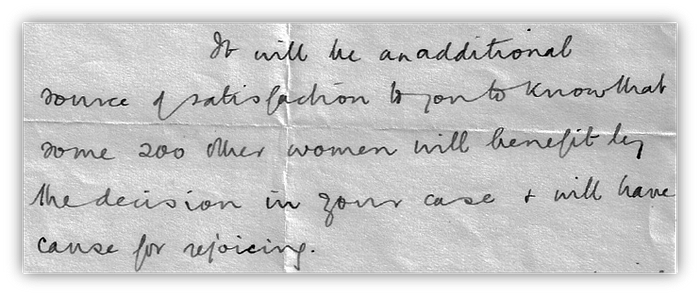 It will be an additional
source of satisfaction to you to know that
some 200 other women will benefit by
the decision in your case & will have
cause for rejoicing.